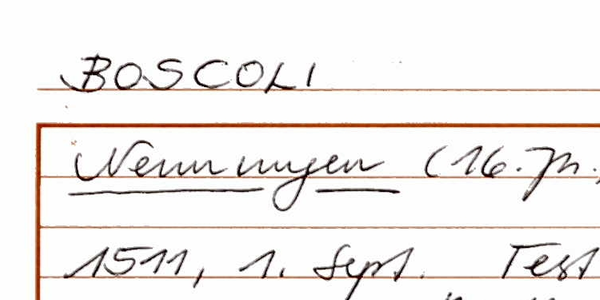 BOSCOLI
Nennungen (16. Jh.,
1511, 1. Sept. Test